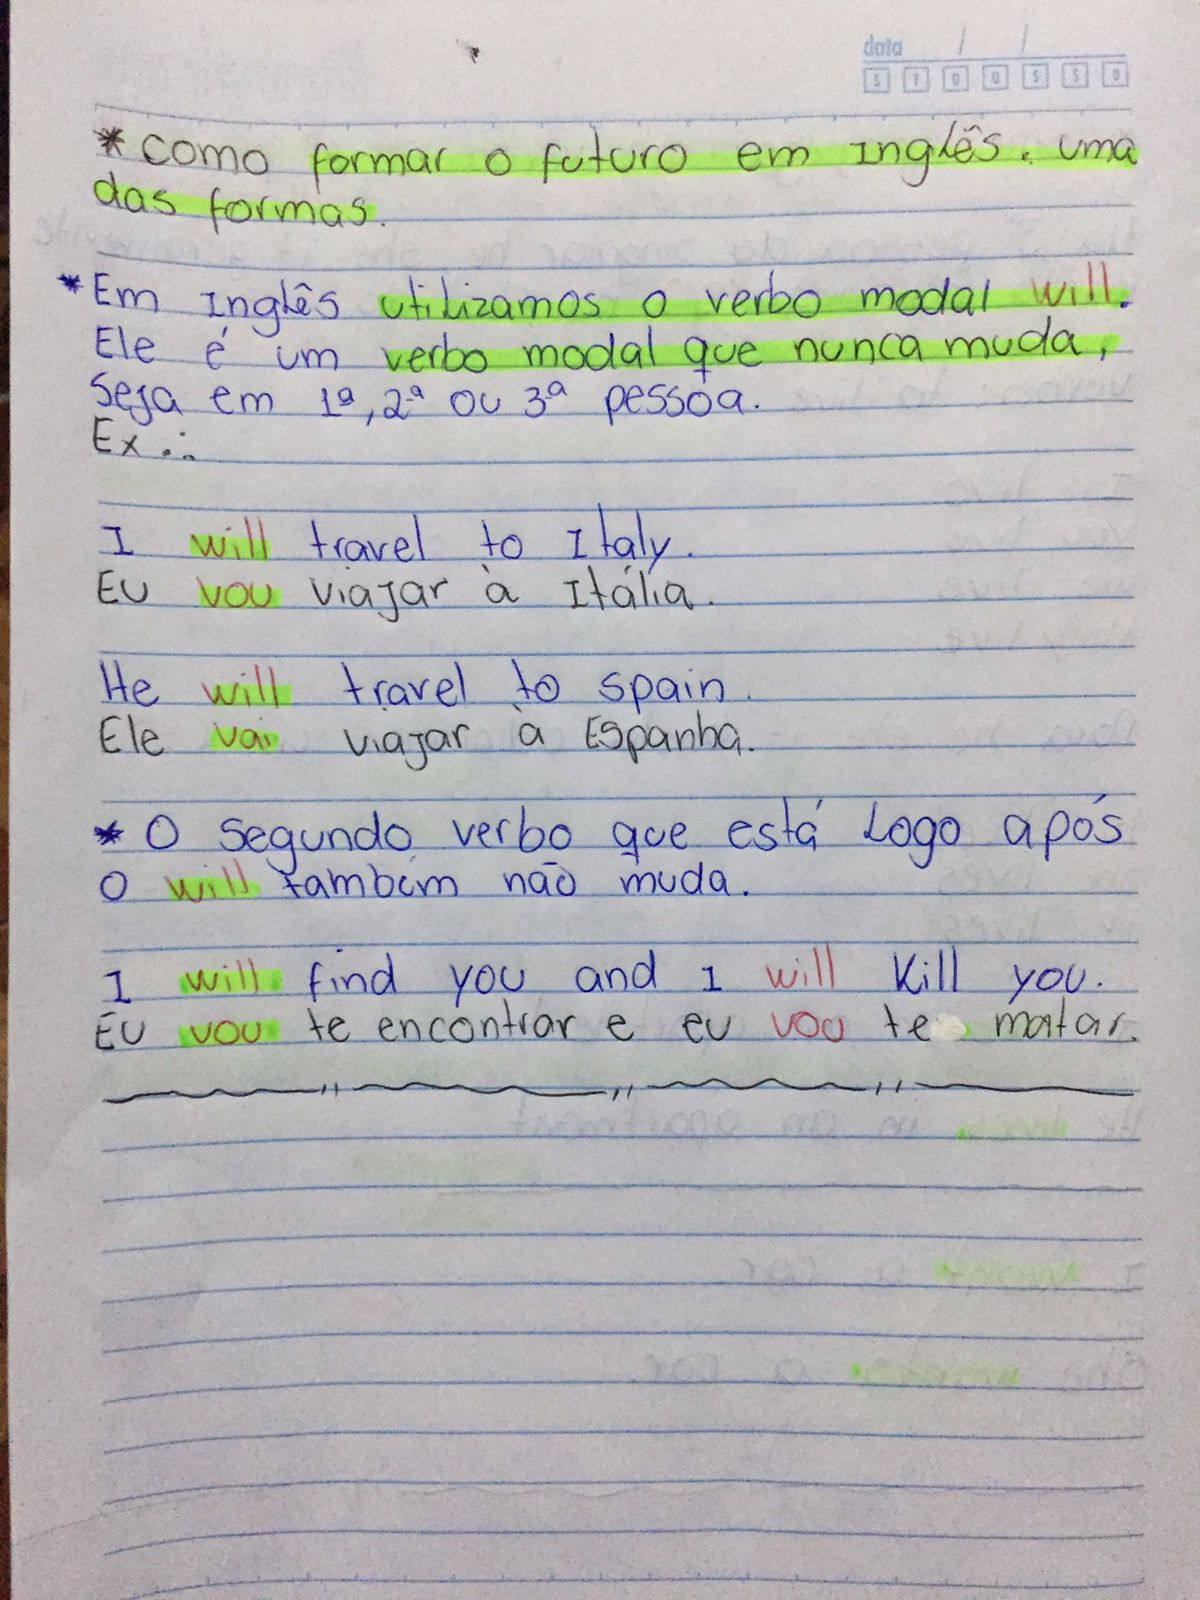 data / /
S T Q Q S S D
* Como formar o futuro em Inglês. Uma
das formas.
* Em Inglês utilizamos o verbo modal will.
Ele é um verbo modal que nunca muda,
Seja em 1ª, 2ª ou 3ª pessoa.
Ex.:.
I will travel to Italy.
Eu vou viajar à Itália.
He will travel to spain.
Ele vai viajar à Espanha.
* O segundo verbo que está Logo após
o will também não muda.
I will find you and I will kill you.
Eu vou te encontrar e eu vou te matar.